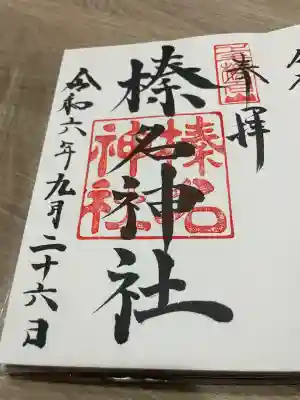 奉拝
榛名神社
榛名神社
令和六年九月二十六日